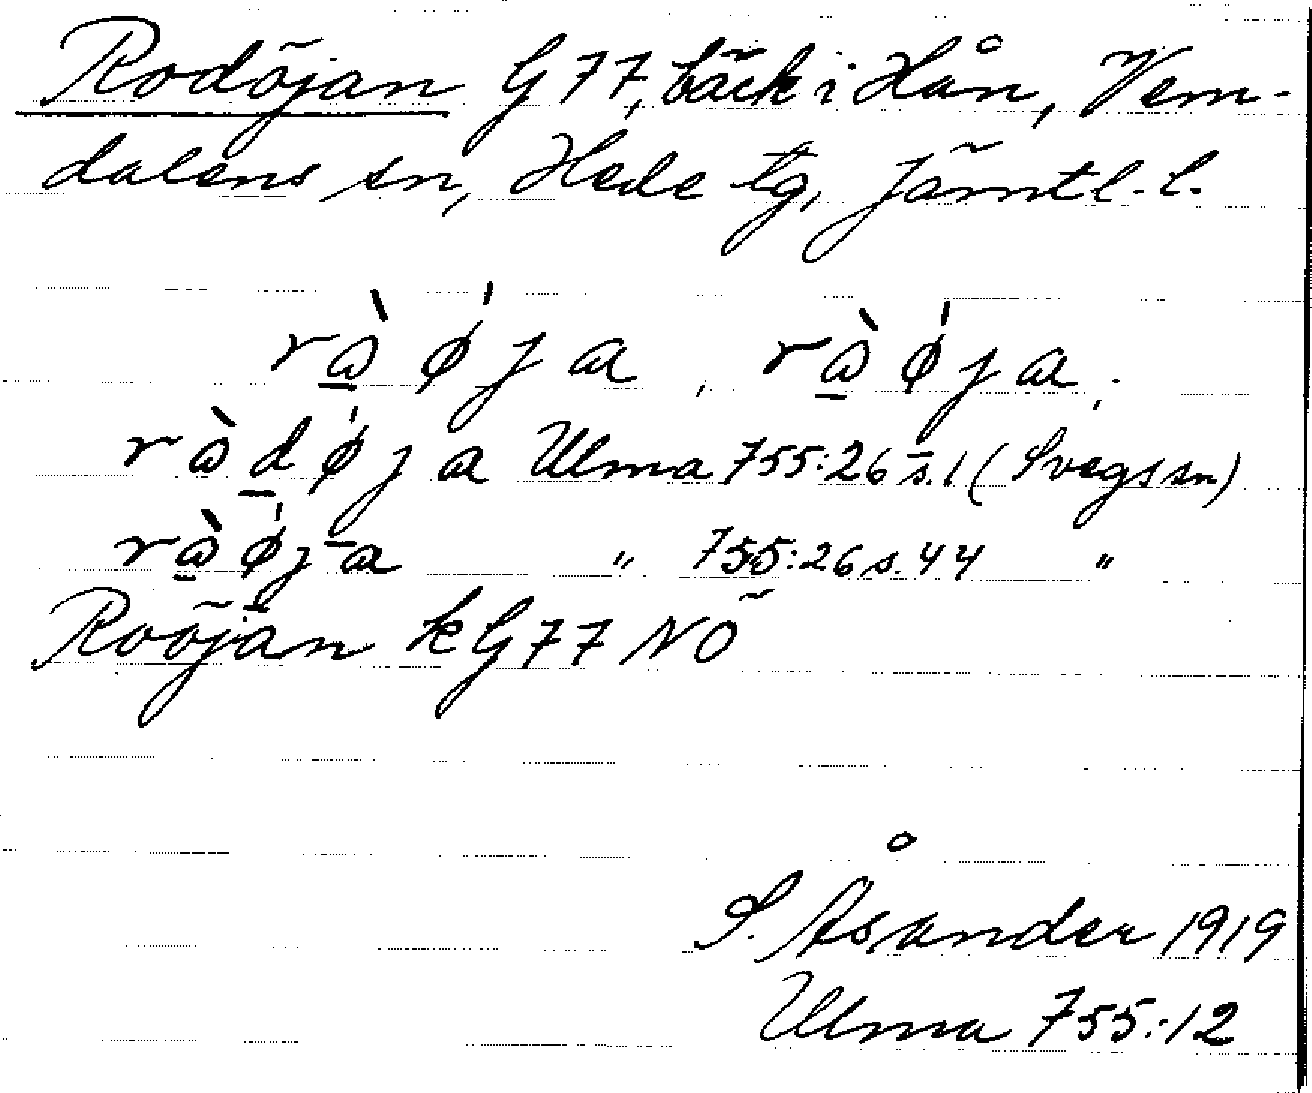 Rodöjan G 77, bäck i Hån, Vem-
dalens sn, Hede tg, Jämtl. l.
rà̱ǿja, rà̱ǿja,
ràḏǿja Ulma 755:26 s. 1 (Svegs sn)
rà̱ǿja " 755:26 s. 44 "
Roöjan k G 77 NÖ
S. Åsander 1919
Ulma 755:12